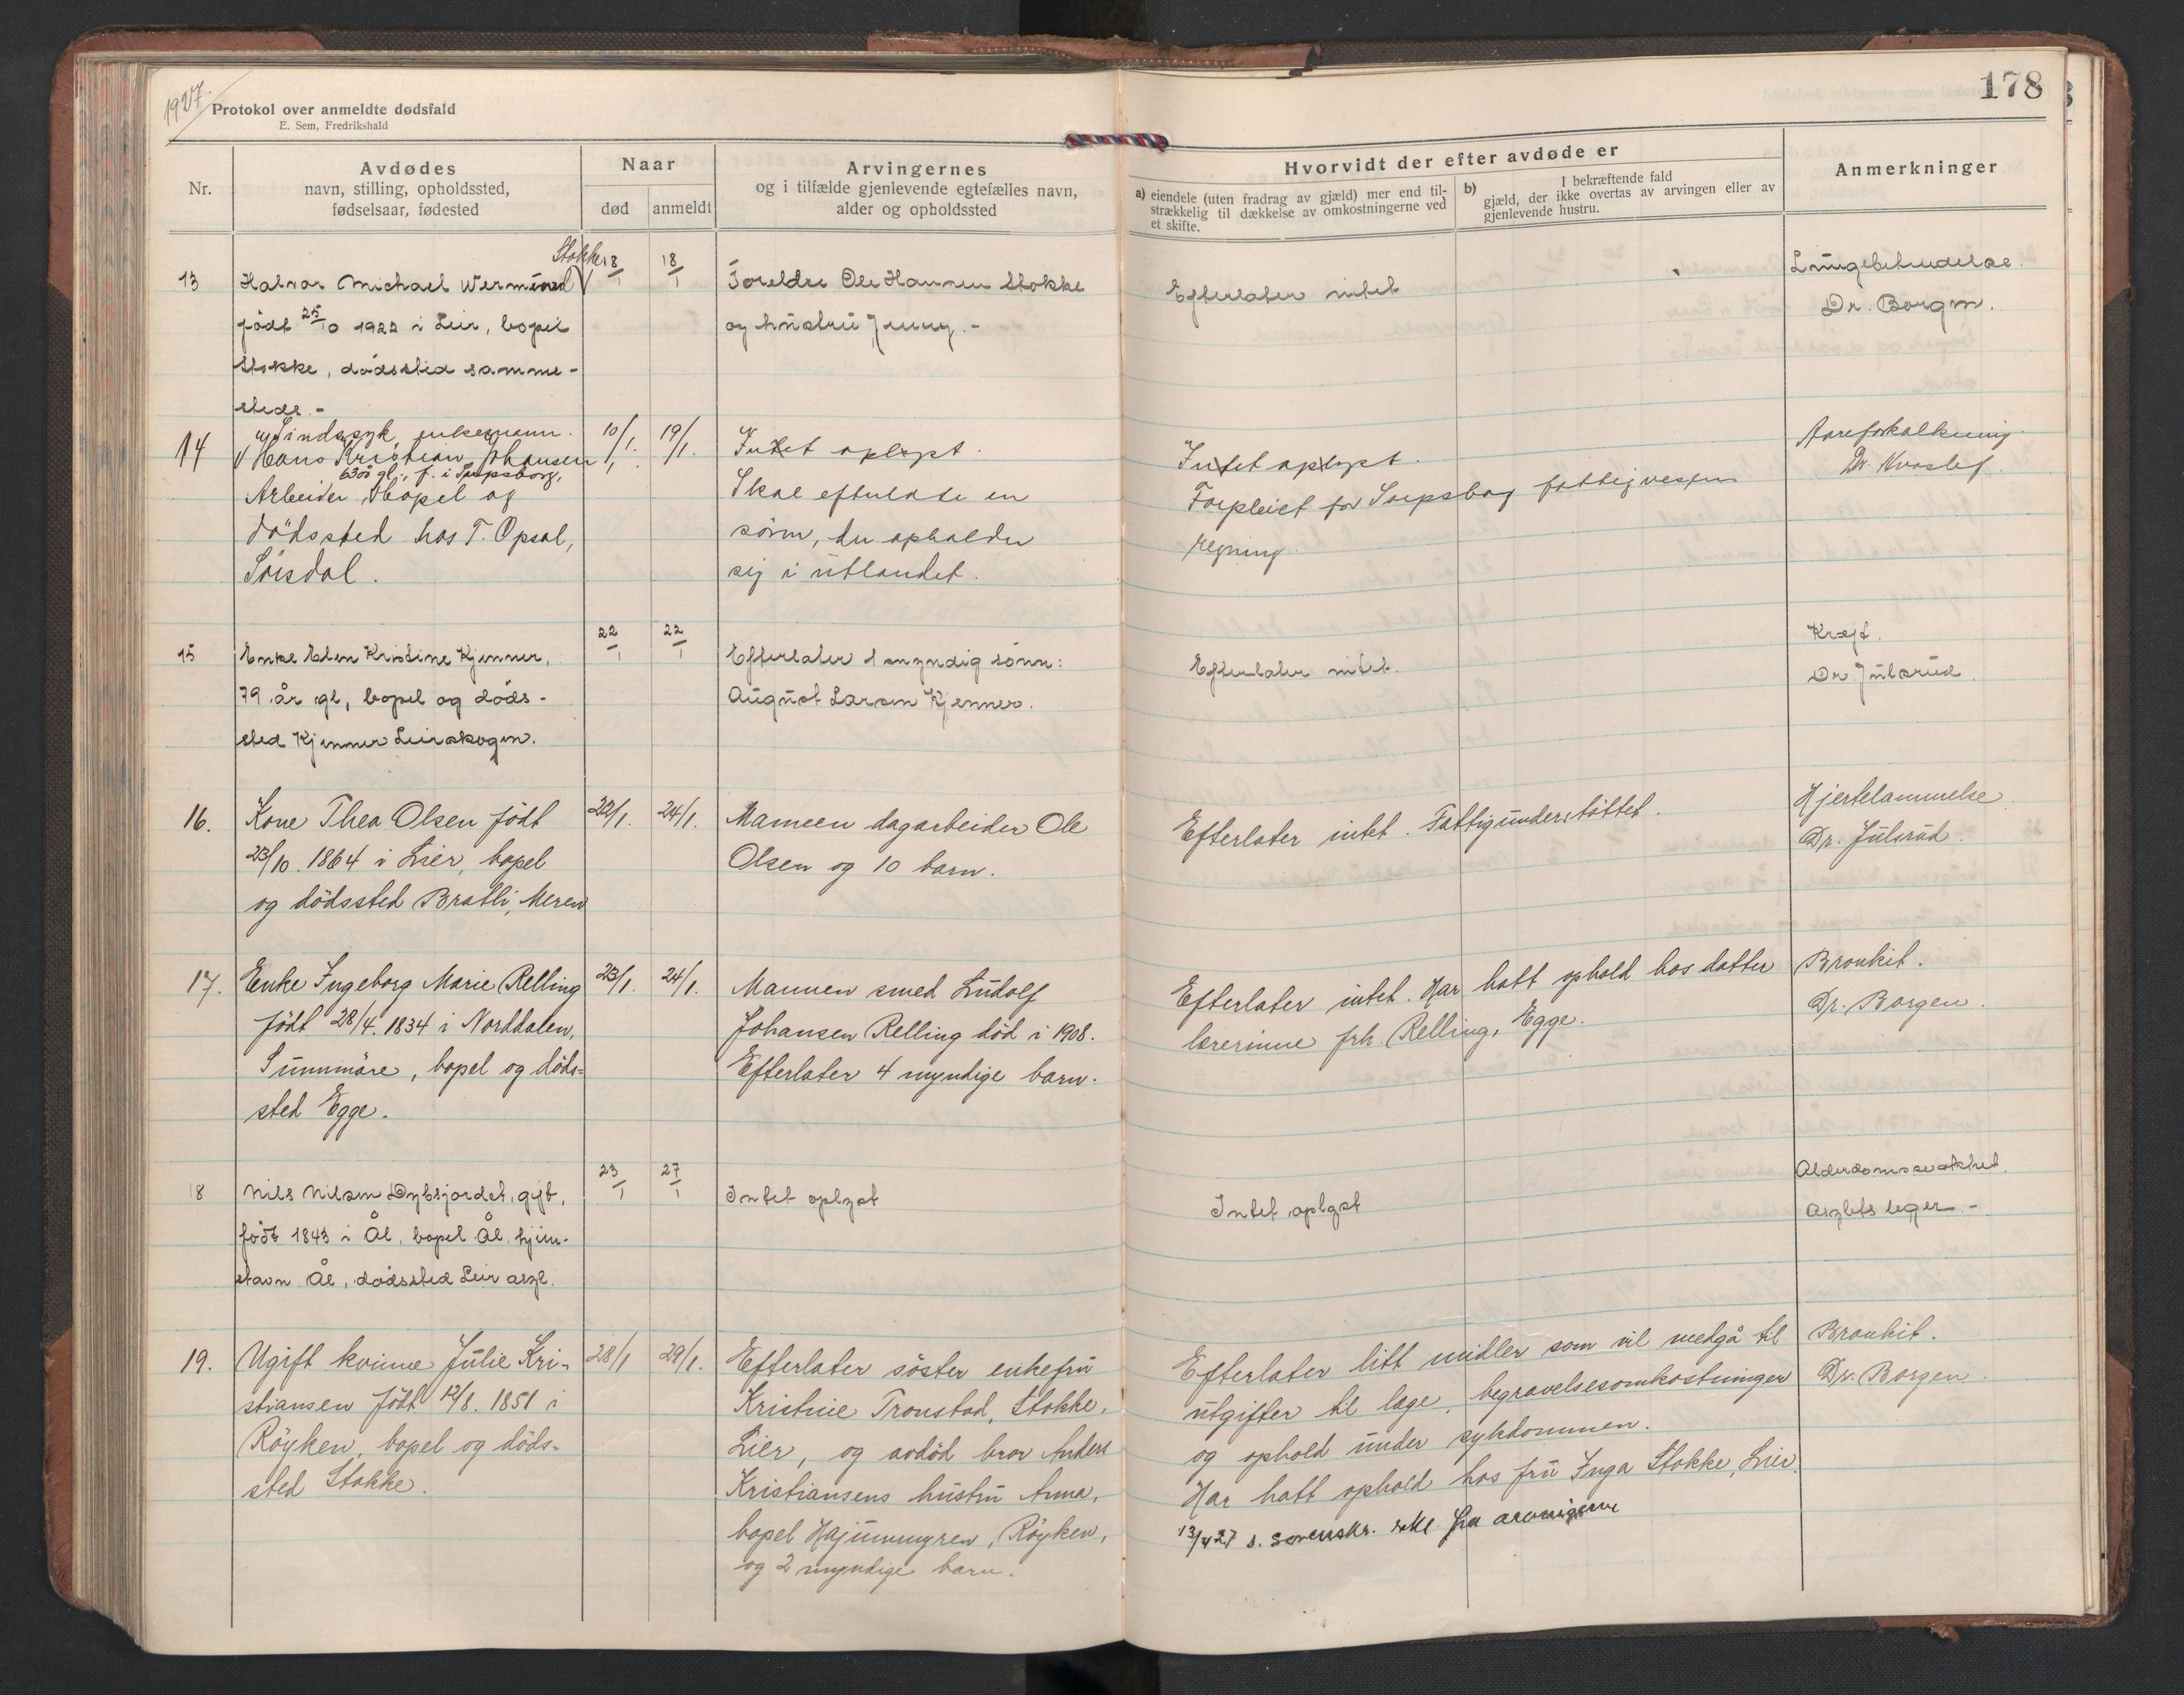 1927.
Protokol over anmeldte dødsfald
E. Sem, Fredrikshald
178
Nr.
Avdødes
navn, stilling, opholdssted,
fødselsaar, fødested
Naar
død
anmeldt
Arvingernes
og i tilfælde gjenlevende egtefælles navn,
alder og opholdssted
Hvorvidt der efter avdøde er
a) eiendele (uten fradrag av gjæld) mer end til-
strækkelig til dækkelse av omkostningerne ved
et skifte.
b) I bekræftende fald
gjæld, der ikke overtas av arvingen eller av
gjenlevende hustru.
Anmerkninger
13
Stokke
Halvor Michael Wermund
født 25/10 1922 i Lier, bopel
Stokke, dødssted samme-
steds.-
18/1
18/1
Foreldre Ole Hansen Stokke
og hustru Jenny.-
Efterlater intet
Lungebetendelse.
Dr. Borgen.
14
Sindssyk, enkemann.
Hans Kristian Johansen
63 år gl., f. i Sarpsborg,
Arbeider, Bopel og
dødssted hos T. Opsal,
Sørsdal.
10/1.
19/1.
Intet oplyst.
Skal efterlate en
sønn, der opholder
sig i utlandet.
Intet oplyst.
Forpleiet for Sarpsborg fattigvesens
regning.
Aareforkalkning.
Dr.
15
Enke Elen Kristine Kjenner,
79 år gl, bopel og døds-
sted Kjenner Lierskogen.
22/1
22/1
Efterlater 1 myndig sønn:
August Larsen Kjenner.
Efterlater intet.
Kreft.
Dr. Julsrud.
16.
Kone Thea Olsen født
23/10. 1864 i Lier, bopel
og dødssted Bratli, Meren
22/1.
24/1.
Mannen dagarbeider Ole
Olsen og 10 barn.
Efterlater intet. Fattigunderstøttet.
Hjertelammelse
Dr. Julsrud.
17.
Enke Ingeborg Marie Relling
født 28/4. 1834 i Norddalen,
Sunnmøre, bopel og døds=
sted Egge.
23/1.
24/1.
Mannen smed Ludolf
Johansen Relling død i 1908.
Efterlater 4 myndige barn.
Efterlater intet. Har hatt ophold hos datter
lærerinne frk. Relling, Egge.
Bronkit.
Dr. Borgen.
18
Nils Nilsen Dybsjordet, gift,
født 1843 i Ål, bopel Ål, hjem-
stavn Ål, dødssted Lier asyl.
23/1
27/1
Intet oplyst
Intet oplyst
Alderdomssvakhet.
Asylets leger.-
19.
Ugift kvinne Julie Kri-
stiansen født 12/8. 1851 i
Røyken, bopel og døds-
sted Stokke.
28/1
29/1.
Efterlater søster enkefru
Kristine Tronstad, Stokke,
Lier, og avdød bror Anders
Kristiansens hustru Anna,
bopel Hajummyren, Røyken,
og 2 myndige barn.
Efterlater litt midler som vil medgå til
utgifter til læge, begravelsesomkostninger
og ophold under sykdommen.
Har hatt ophold hos fru Inga Stokke, Lier.
13/4 27 s. sorenskr. erkl. fra arvingerne
Bronkit.
Dr. Borgen.